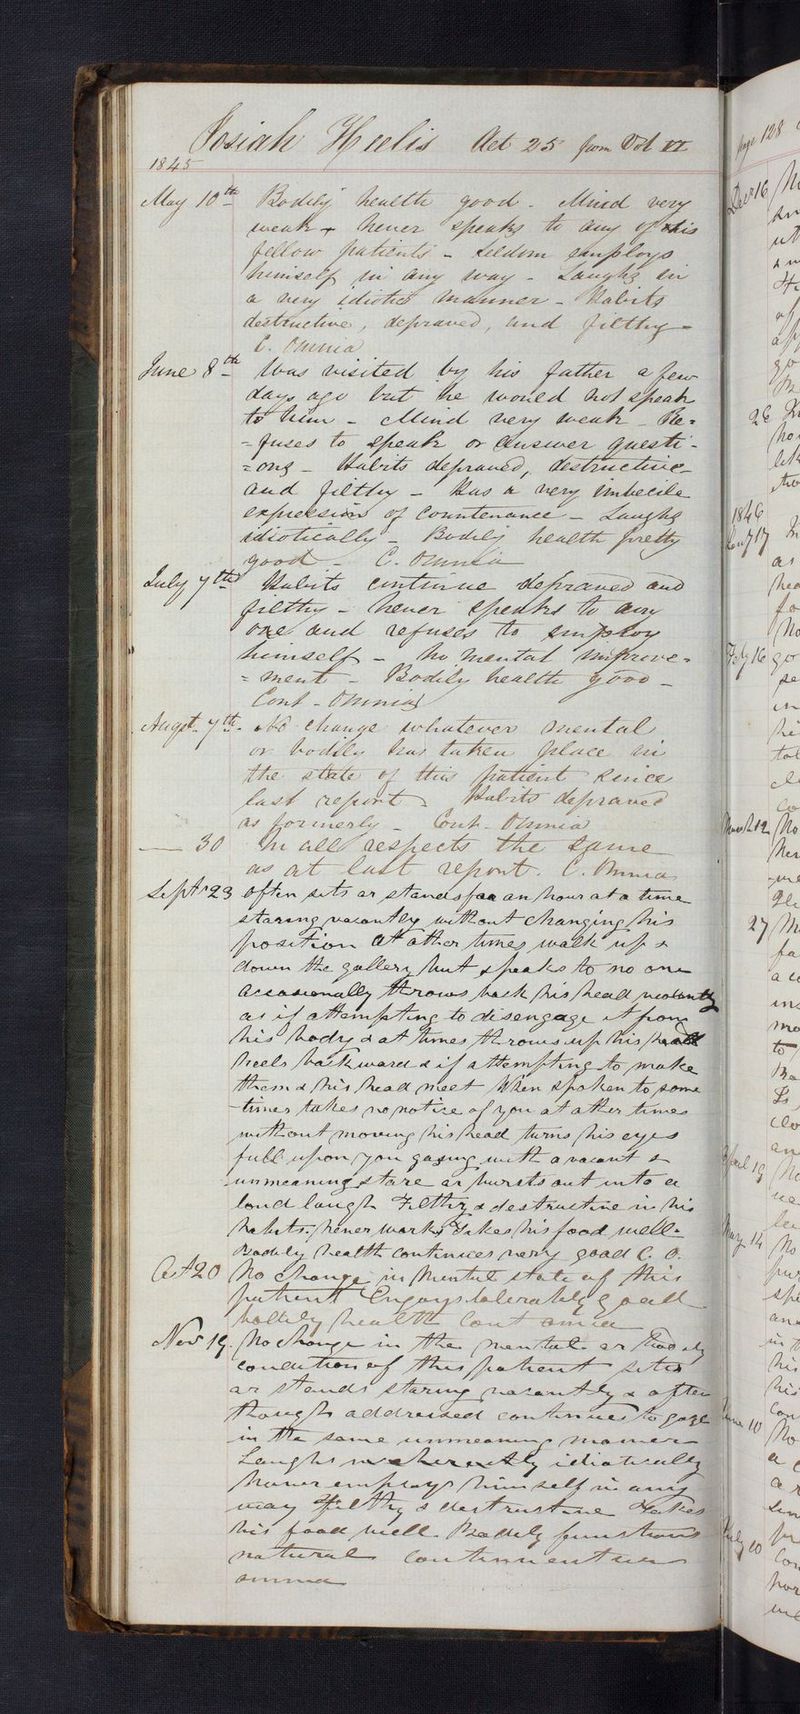 Josiah Heelis Aet 25 from Vol VI
1845
May 10th Bodily health good - Mind very
weak - never speaks to any of his
fellow patients - seldom employs
himself in any way - Laughs in
a very idiotic manner - Habits
destructive, depraved, and filthy -
C. Omnia
June 8th Was visited by his father a few
days ago but he would not speak
to him - Mind very weak - Re=
=fuses to speak or answer questi-
=ons - Habits depraved, destructive
and filthy - Has a very imbecile
expression of countenance - Laughs
idiotically - Bodily health pretty
good - C. Omnia
July 7th Habits continue depraved and
filthy - never speaks to any
one and refuses to employ
himself - No mental improve=
=ment - Bodily health good -
Cont - Omnia
Augst 7th - No change whatever mental
or bodily has taken place in
the state of this patient since
last report - Habits depraved
as formerly - Cont - Omnia
— 30 In all respects the same
as at last report. C. Omnia
Septr 23 often sits or stands for an hour at a time
staring vacantly without changing his
position At other times walk up &
down the gallery but speaks to no one
occasionally throws back his head violently
as if attempting to disengage it from
his body & at times throws up his
heels backward as if attempting to make
them & his head meet When spoken to some
times takes no notice of you at other times
without moving his head turns his eyes
full upon you gazing with a vacant &
unmeaning stare or bursts out into a
loud laugh Filthy & destructive in his
habits. never works Takes his food well.
Bodily health continues very good C. O.
Oct 20 No change in mental state of this
patient Enjoys tolerably good
bodily health Cont omia
Nov 19. No change in the mental or bodily
condition of this patient sits
or stands staring vacantly & often
though addressed continues to gaze
in the same unmeaning manner
Laughs idiotically
never employs himself in any
way filthy & destructive Takes
his food well. Bodily functions
natural continuentur
omnia
page 128
Decr 16
26
1846
Jany 17
Feby 16
March 12
27
April 19
May 14
June 10
July 10